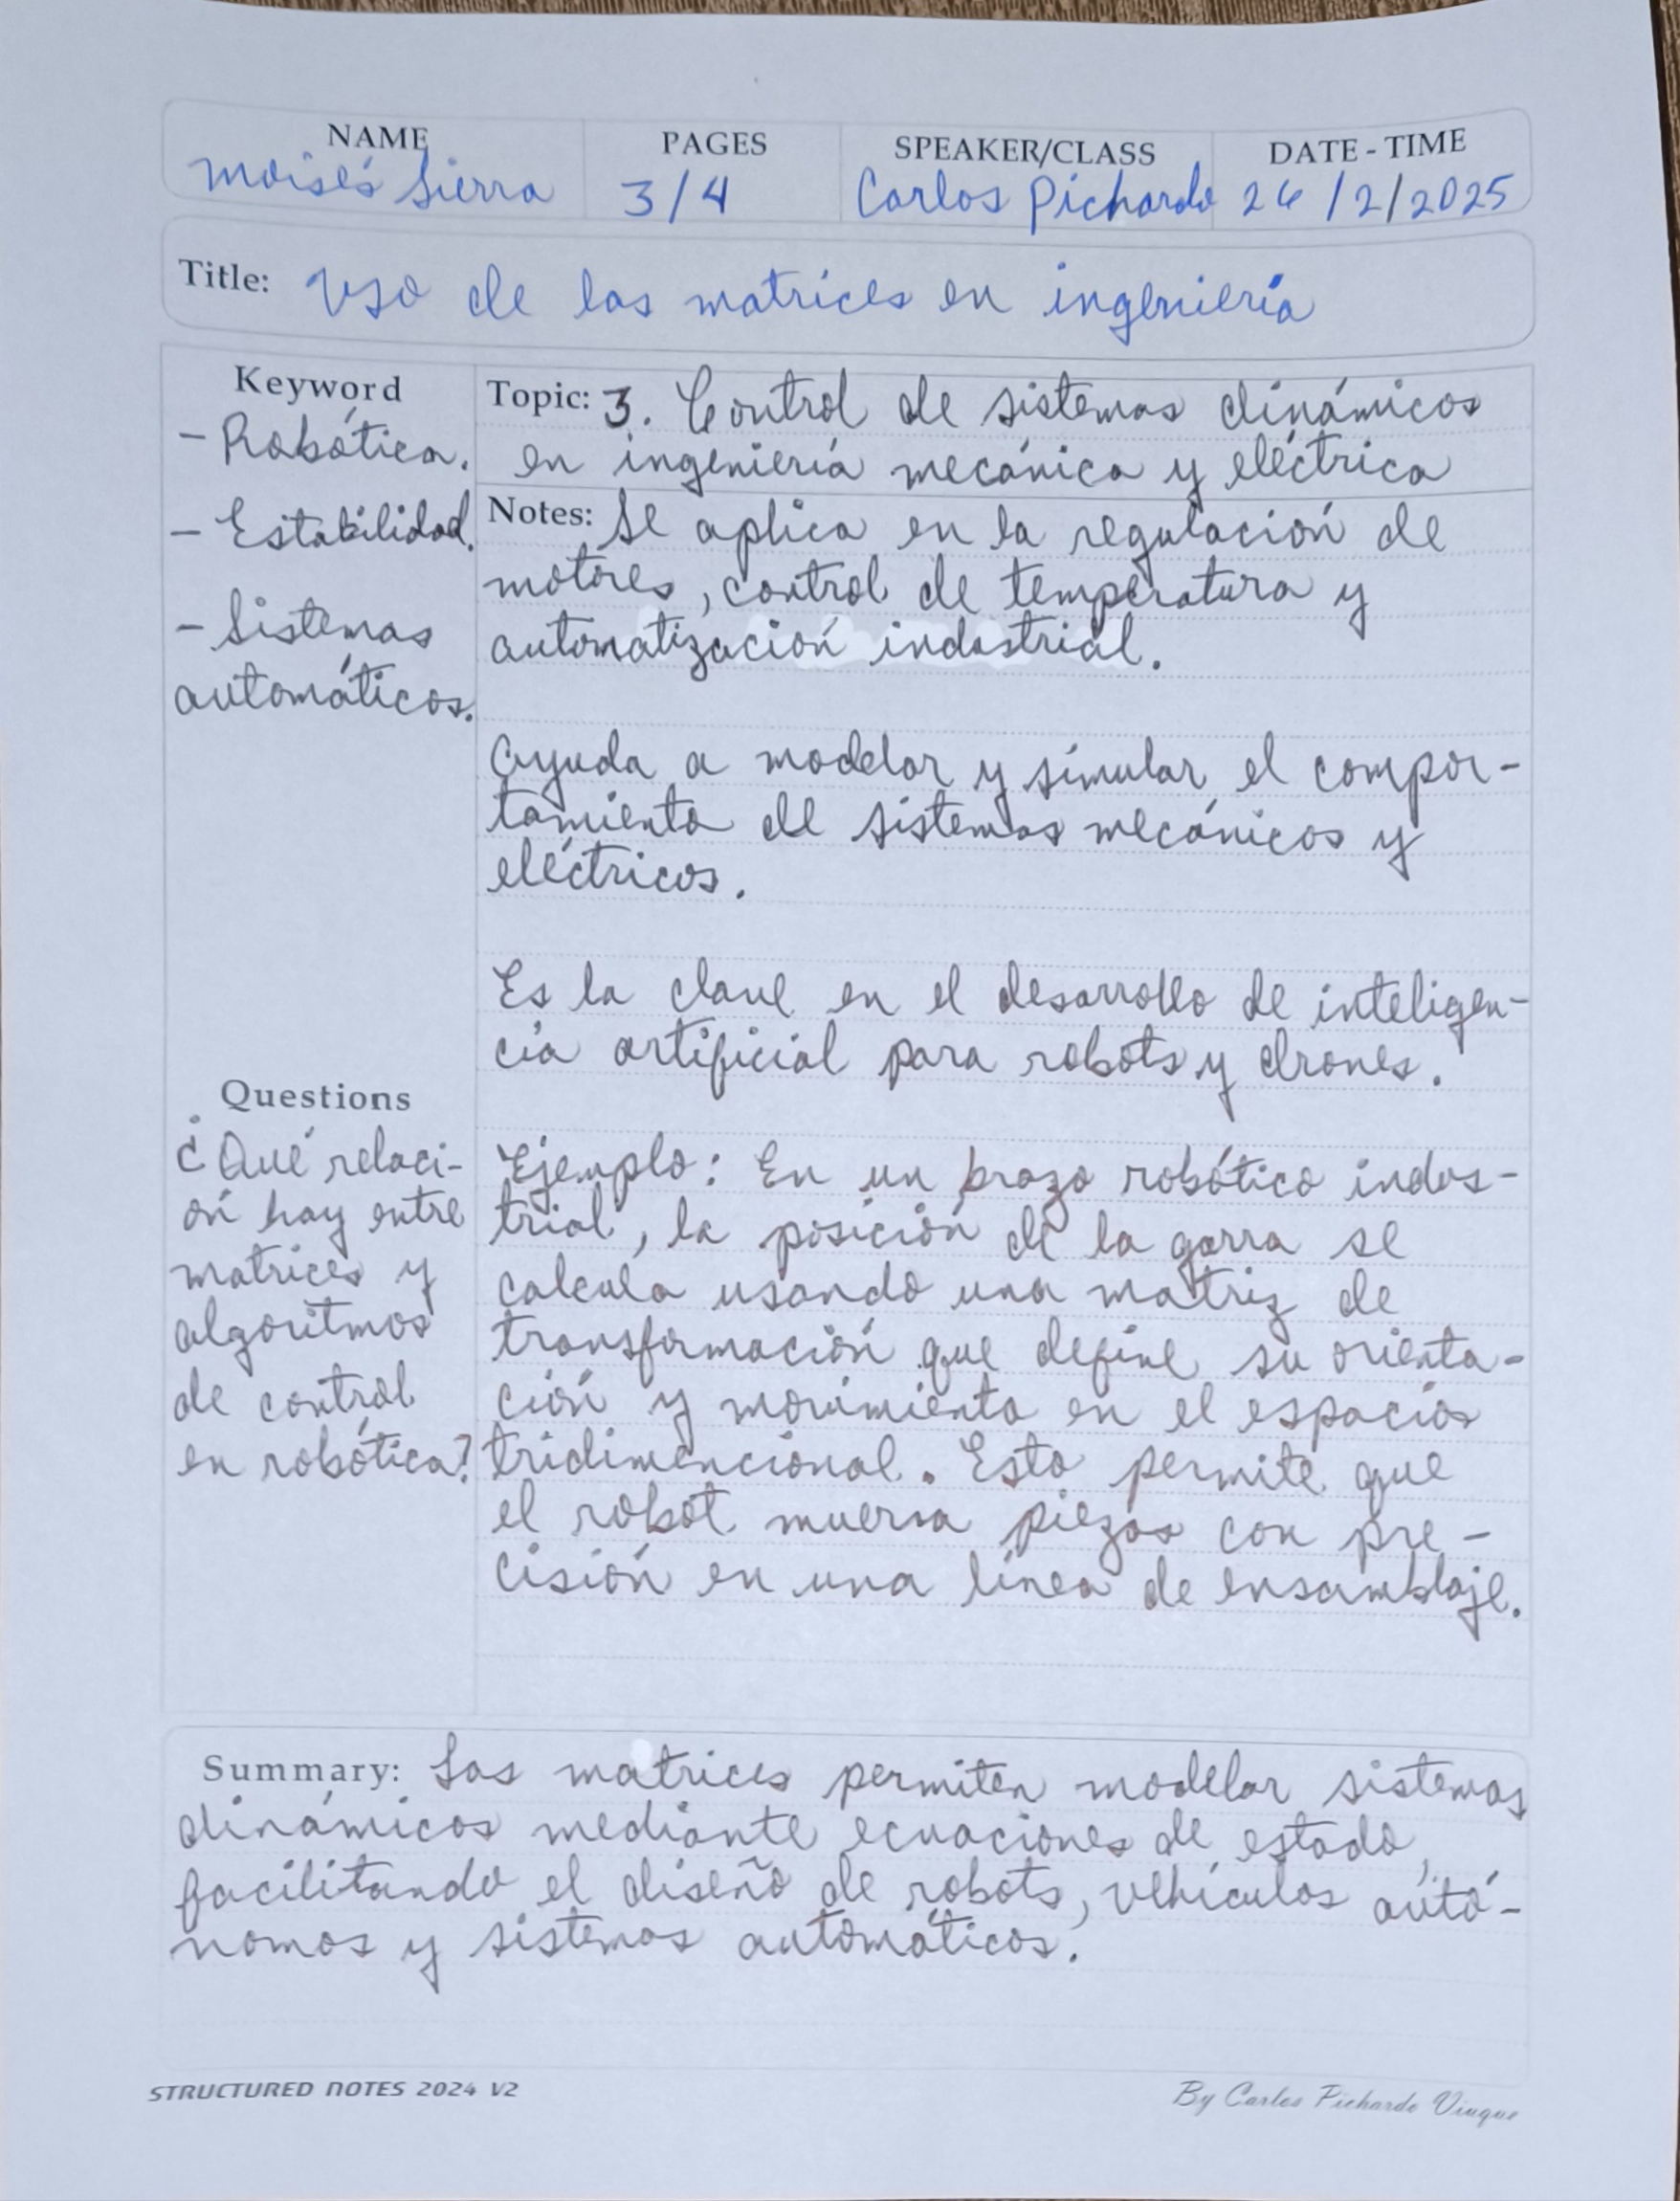 NAME PAGES SPEAKER/CLASS DATE - TIME
Moisés Sierra 3/4 Carlos Pichardo 26/2/2025
Title: Uso de las matrices en ingeniería
Keyword
- Robótica.
- Estabilidad.
- Sistemas
automáticos.
Questions
¿Qué relaci-
ón hay entre
matrices y
algoritmos
de control
en robótica?
Topic: 3. Control de sistemas dinámicos
en ingeniería mecánica y eléctrica
Notes: Se aplica en la regulación de
motores, control de temperatura y
automatización industrial.
Ayuda a modelar y simular el compor-
tamiento de sistemas mecánicos y
eléctricos.
Es la clave en el desarrollo de inteligen-
cia artificial para robots y drones.
Ejemplo: En un brazo robótico indus-
trial, la posición de la garra se
calcula usando una matriz de
transformación que define su orienta-
ción y movimiento en el espacios
tridimencional. Esto permite que
el robot mueva piezas con pre-
cisión en una línea de ensamblaje.
Summary: Las matrices permiten modelar sistemas
dinámicos mediante ecuaciones de estado,
facilitando el diseño de robots, vehículos autó-
nomos y sistemas automáticos.
STRUCTURED NOTES 2024 V2
By Carlos Pichardo Viuque